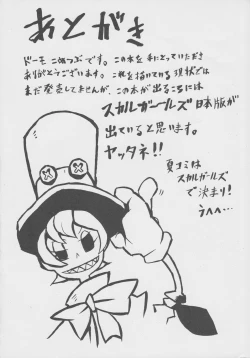 あとがき
ドーモ こぬつぶです。この本を手にとっていただき
ありがとうございます。これを描いている現状では
まだ発売してませんが、この本が出るころには
スカルガールズ日本版が
出ていると思います。
ヤッタネ!!
夏コミは
スカルガールズ
で決まり!
うへへ…